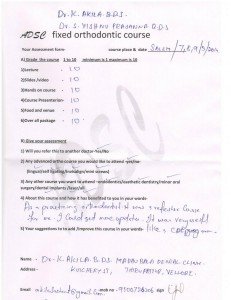 Dr. K. AKILA. B.D.S.
Dr. S. VISHNU PRASANNA B.D.S
ADSC fixed orthodontic course
Your Assessment form- course place & date
A) Grade the course 1 to 10 minimum is 1 maximum is 10
1)Lecture - 10
2)Slides /video - 10
3)Hands on course - 10
4)Course Presentation- 10
5)Food and venue - 10
6)Over all package - 10
B) Give your assessment
1) Will you refer this to another doctor-Yes/No
2) Any advanced orthocourse you would like to attend -yes/no-
(lingual/self ligating/Invisalign/mini screws)
3) Any other course you want to attend -endodontics/aesthetic dentistry/minor oral
surgery/dental implants /laser/all
4) About this course and how it has benefited to you in your words-
As a practising orthodontist it was refresher course
for me. I could get more updates. It was very useful
5) Your suggestions to to add /improve this course in your words- like a
Name - Dr. K. AKILA B.D.S DENTAL CLINIC
Address - VELLORE.
Email mob.no - sign